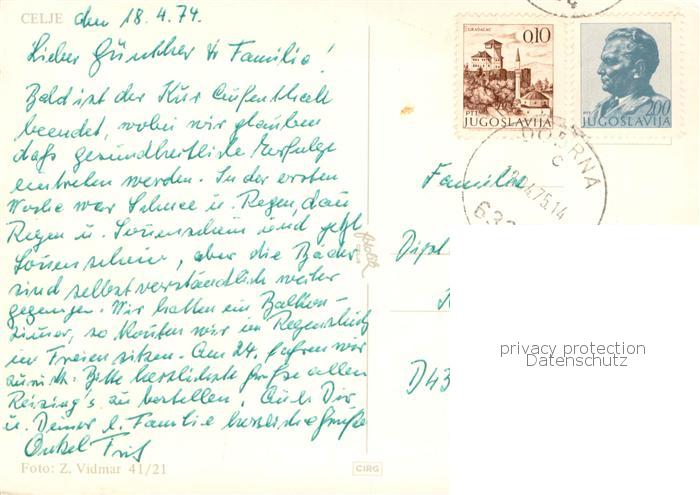 CELJE den 18.4.74.
Lieber Günther & Familie!
Bald ist der Kur Aufenthalt
beendet, wobei wir glauben
daß gesundheitliche Erfolge
eintreten werden. In der ersten
Woche war Schnee u. Regen, dann
Regen u. Sonnenschein und jetzt
Sonnenschein, aber die Bäder
sind selbstverständlich weiter
gegangen. Wir hatten ein Balkon-
zimmer, so konnten wir im Regenschutz
im Freien sitzen. Am 24. fahren wir
zurück. Bitte herzlichste Grüße allen
zu bestellen. Auch Dir
u. Deiner l. Familie herzliche Grüße
Onkel Fritz
Foto: Z. Vidmar 41/21
CIRG
GRADAČAC
0,10
PTT
JUGOSLAVIJA
PTT
2,00
JUGOSLAVIJA
DOBRNA
C
.4.75.14
632
Familie
Dipl
D43
privacy protection
Datenschutz